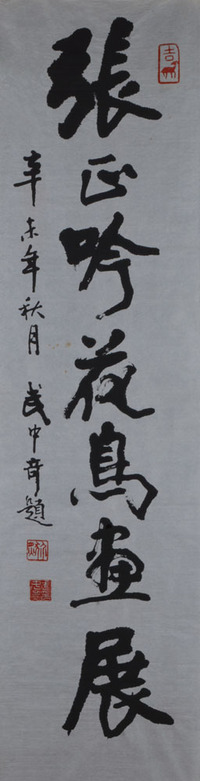 張正吟花鳥畫展
辛未年秋月 武中奇題